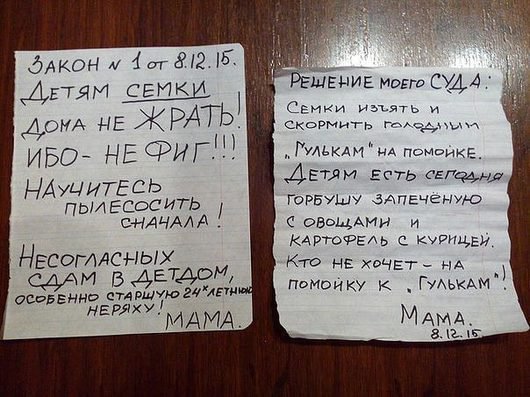 ЗАКОН N 1 от 8.12.15.
ДЕТЯМ СЕМКИ
ДОМА НЕ ЖРАТЬ!
ИБО - НЕ ФИГ!!!
НАУЧИТЕСЬ
ПЫЛЕСОСИТЬ
СНАЧАЛА!
НЕСОГЛАСНЫХ
СДАМ В ДЕТДОМ,
ОСОБЕННО СТАРШУЮ 24х ЛЕТНЮЮ
НЕРЯХУ!
МАМА.
РЕШЕНИЕ МОЕГО СУДА:
СЕМКИ ИЗЪЯТЬ И
СКОРМИТЬ ГОЛОДНЫМ
„ГУЛЬКАМ" НА ПОМОЙКЕ.
ДЕТЯМ ЕСТЬ СЕГОДНЯ
ГОРБУШУ ЗАПЕЧЁНУЮ
С ОВОЩАМИ И
КАРТОФЕЛЬ С КУРИЦЕЙ.
КТО НЕ ХОЧЕТ - НА
ПОМОЙКУ К „ГУЛЬКАМ"!
МАМА.
8.12.15.